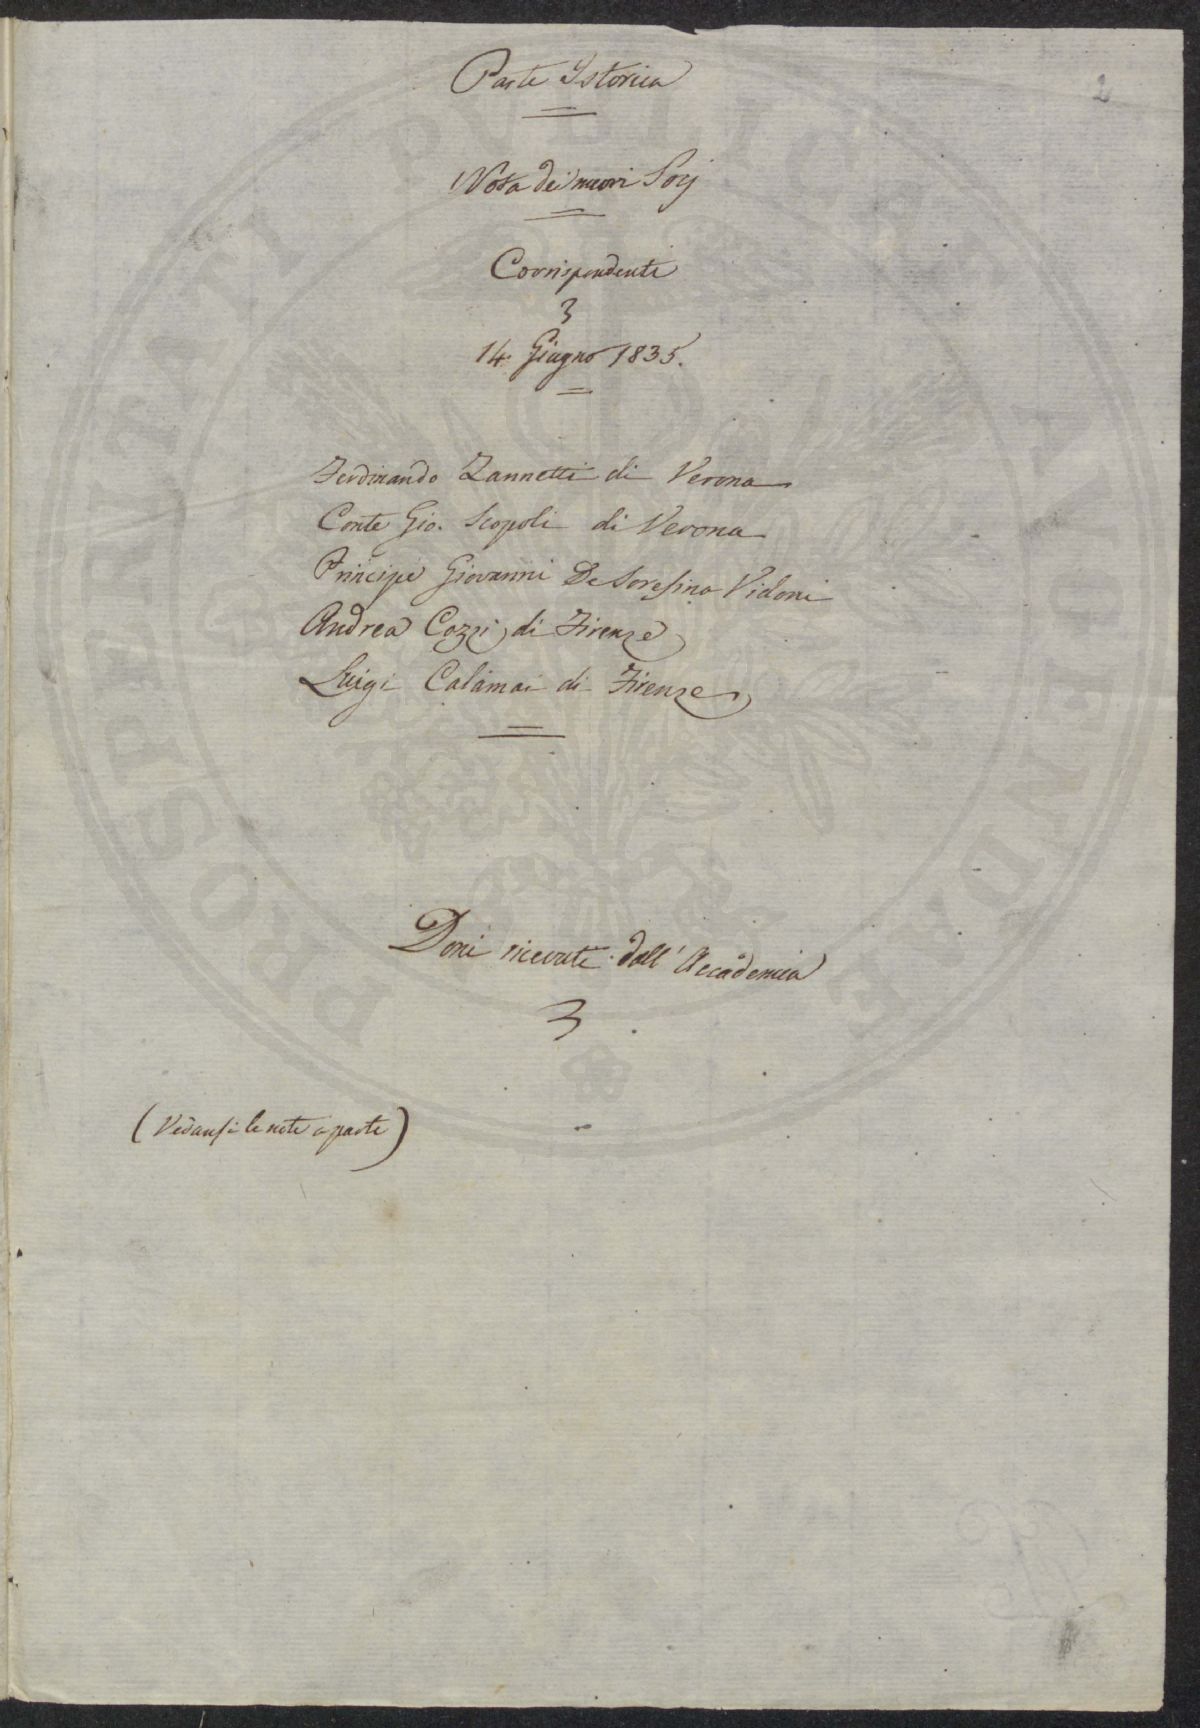 2
Parte Istorica
Nota dei nuovi Socj
Corrispondenti
3
14. Giugno 1835.
Ferdinando Zannetti di Verona
Conte Gio. Scopoli di Verona
Principe Giovanni De Soresina Vidoni
Andrea Cozzi di Firenze
Luigi Calamai di Firenze
Doni ricevuti dall' Accademia
3
(Vedansi le note a parte)
PROSPERITATI PUBLICAE AUGENDAE